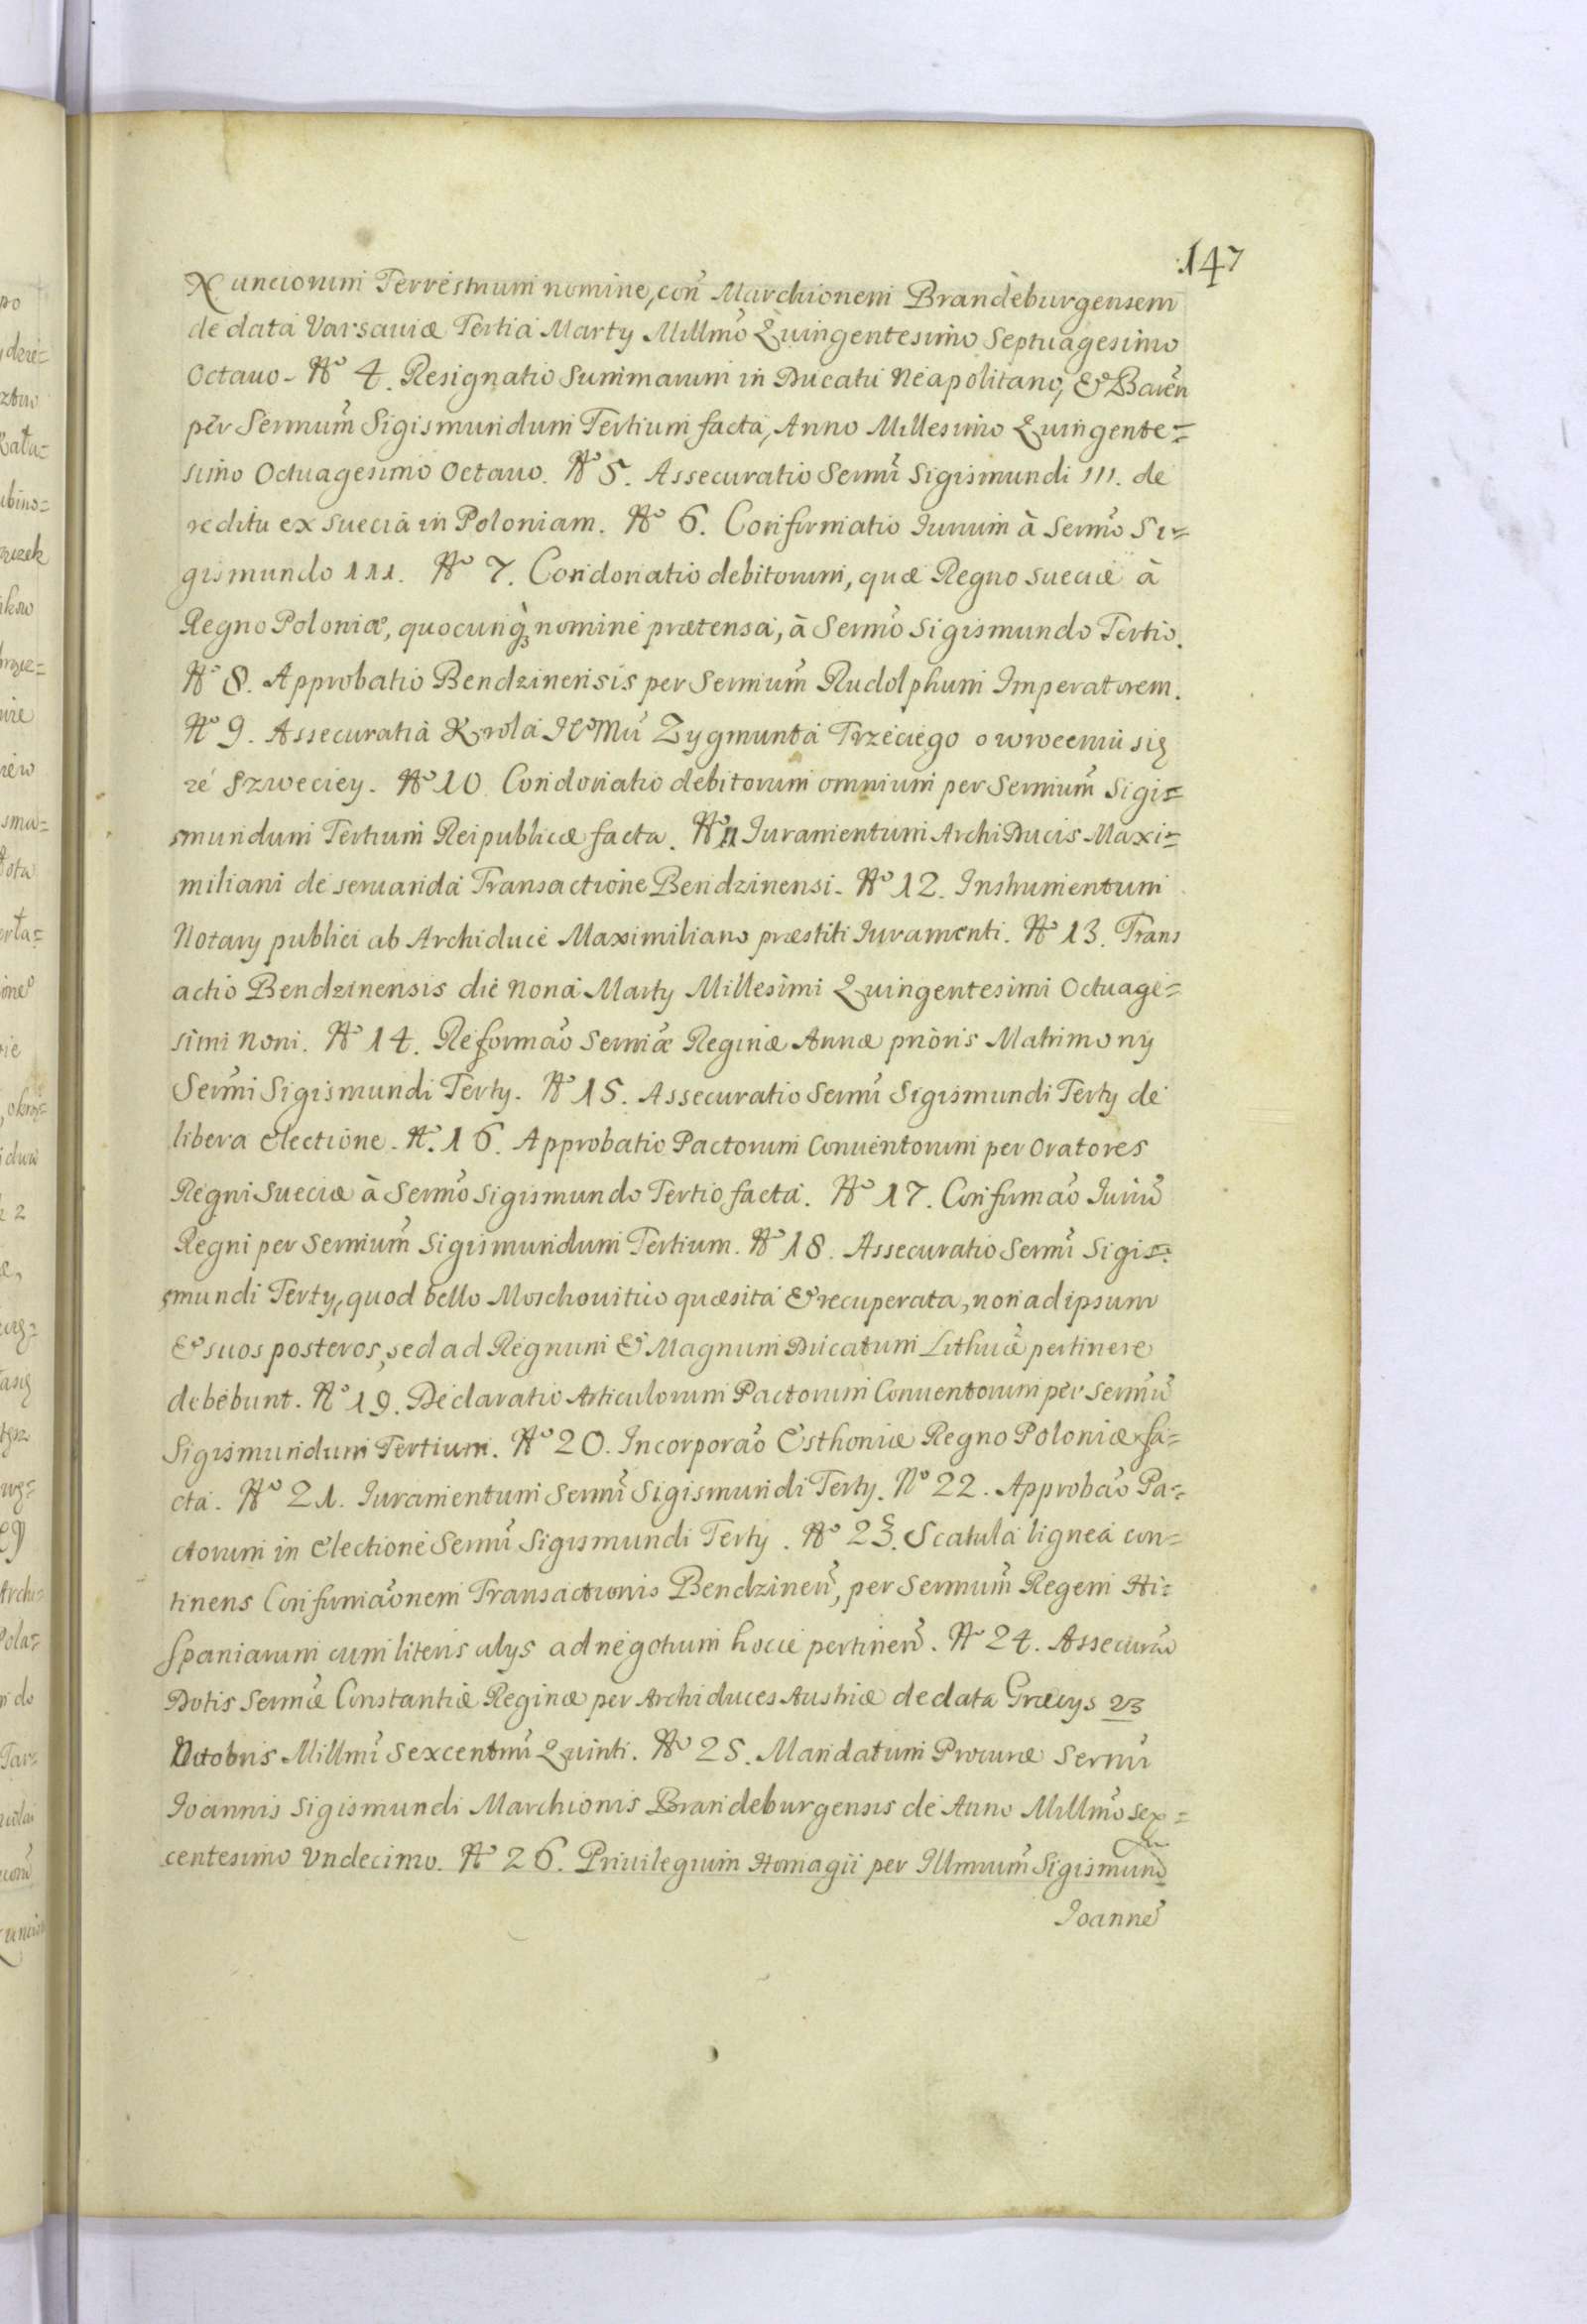 147
Nunciorum Terrestrium nomine, con̄ Marchionem Brandeburgensem
de data Varsauiæ Tertia Marty Millmo Quingentesimo Septuagesimo
Octauo. No 4. Resignatio Summarum in Ducatu Neapolitano, & Baren̄
per Sermum Sigismundum Tertium facta, Anno Millesimo Quingente=
simo Octuagesimo Octauo. No 5. Assecuratio Sermi Sigismundi III. de
reditu ex Suecia in Poloniam. No 6. Confirmatio Iurium à Sermo Si=
gismundo 111. No 7. Condonatio debitorum, quæ Regno Sueciæ à
Regno Poloniæ, quocunq; nomine prætensa, à Sermo Sigismundo Tertio.
No 8. Approbatio Bendzinensis per Sermum Rudolphum Imperatorem.
No 9. Assecuratia Krola Ie°Mu Zygmunta Trzeciego o wroceniu się
ze Szweciey. No 10 Condonatio debitorum omnium per Sermum Sigis=
smundum Tertium Reipublicæ facta. No 11 Iuramentum ArchiDucis Maxi=
miliani de seruanda Transactione Bendzinensi. No 12. Instrumentum
Notary publici ab Archiduce Maximiliano præstiti Iuramenti. No 13. Trans
actio Bendzinensis die nona Marty Millesimi Quingentesimi Octuage=
simi Noni. No 14. Reformāo Sermæ Reginæ Annæ prioris Matrimony
Sermi Sigismundi Terty. No 15. Assecuratio Sermi Sigismundi Terty de
libera Electione. N. 16. Approbatio Pactorum Conuentorum per Oratores
Regni Sueciæ à Sermo Sigismundo Tertio facta. No 17. Confirmāo Iuriū
Regni per Sermum Sigismundum Tertium. No 18. Assecuratio Sermi Sigis=
smundi Terty, quod bello Moschouitico quæsita & recuperata, non ad ipsum
& suos posteros, sed ad Regnum & Magnum Ducatum Lithuæ pertinere
debebunt. No 19. Declaratio Articulorum Pactorum Conuentorum per Sermū
Sigismundum Tertium. No 20. Incorporāo Esthoniæ Regno Poloniæ fa=
cta. No 21. Iuramentum Sermi Sigismundi Terty. No 22. Approbāo Pa=
ctorum in Electione Sermi Sigismundi Terty. No 23. Scatula lignea con=
tinens Confirmāonem Transactionis Bendzinen̄, per Sermum Regem Hi=
spaniarum cum literis alys ad negotium hocce pertinen̄. No 24. Assecurāo
Dotis Sermæ Constantiæ Reginæ per Archiduces Austriæ de data Græcys 23
Octobris Millmi Sexcentmi Quinti. No 25. Mandatum Procuræ Sermi
Ioannis Sigismundi Marchionis Brandeburgensis de Anno Millmo Sex=
centesimo Vndecimo. No 26. Priuilegium Homagii per Illmum Sigismun̄
Ioannē